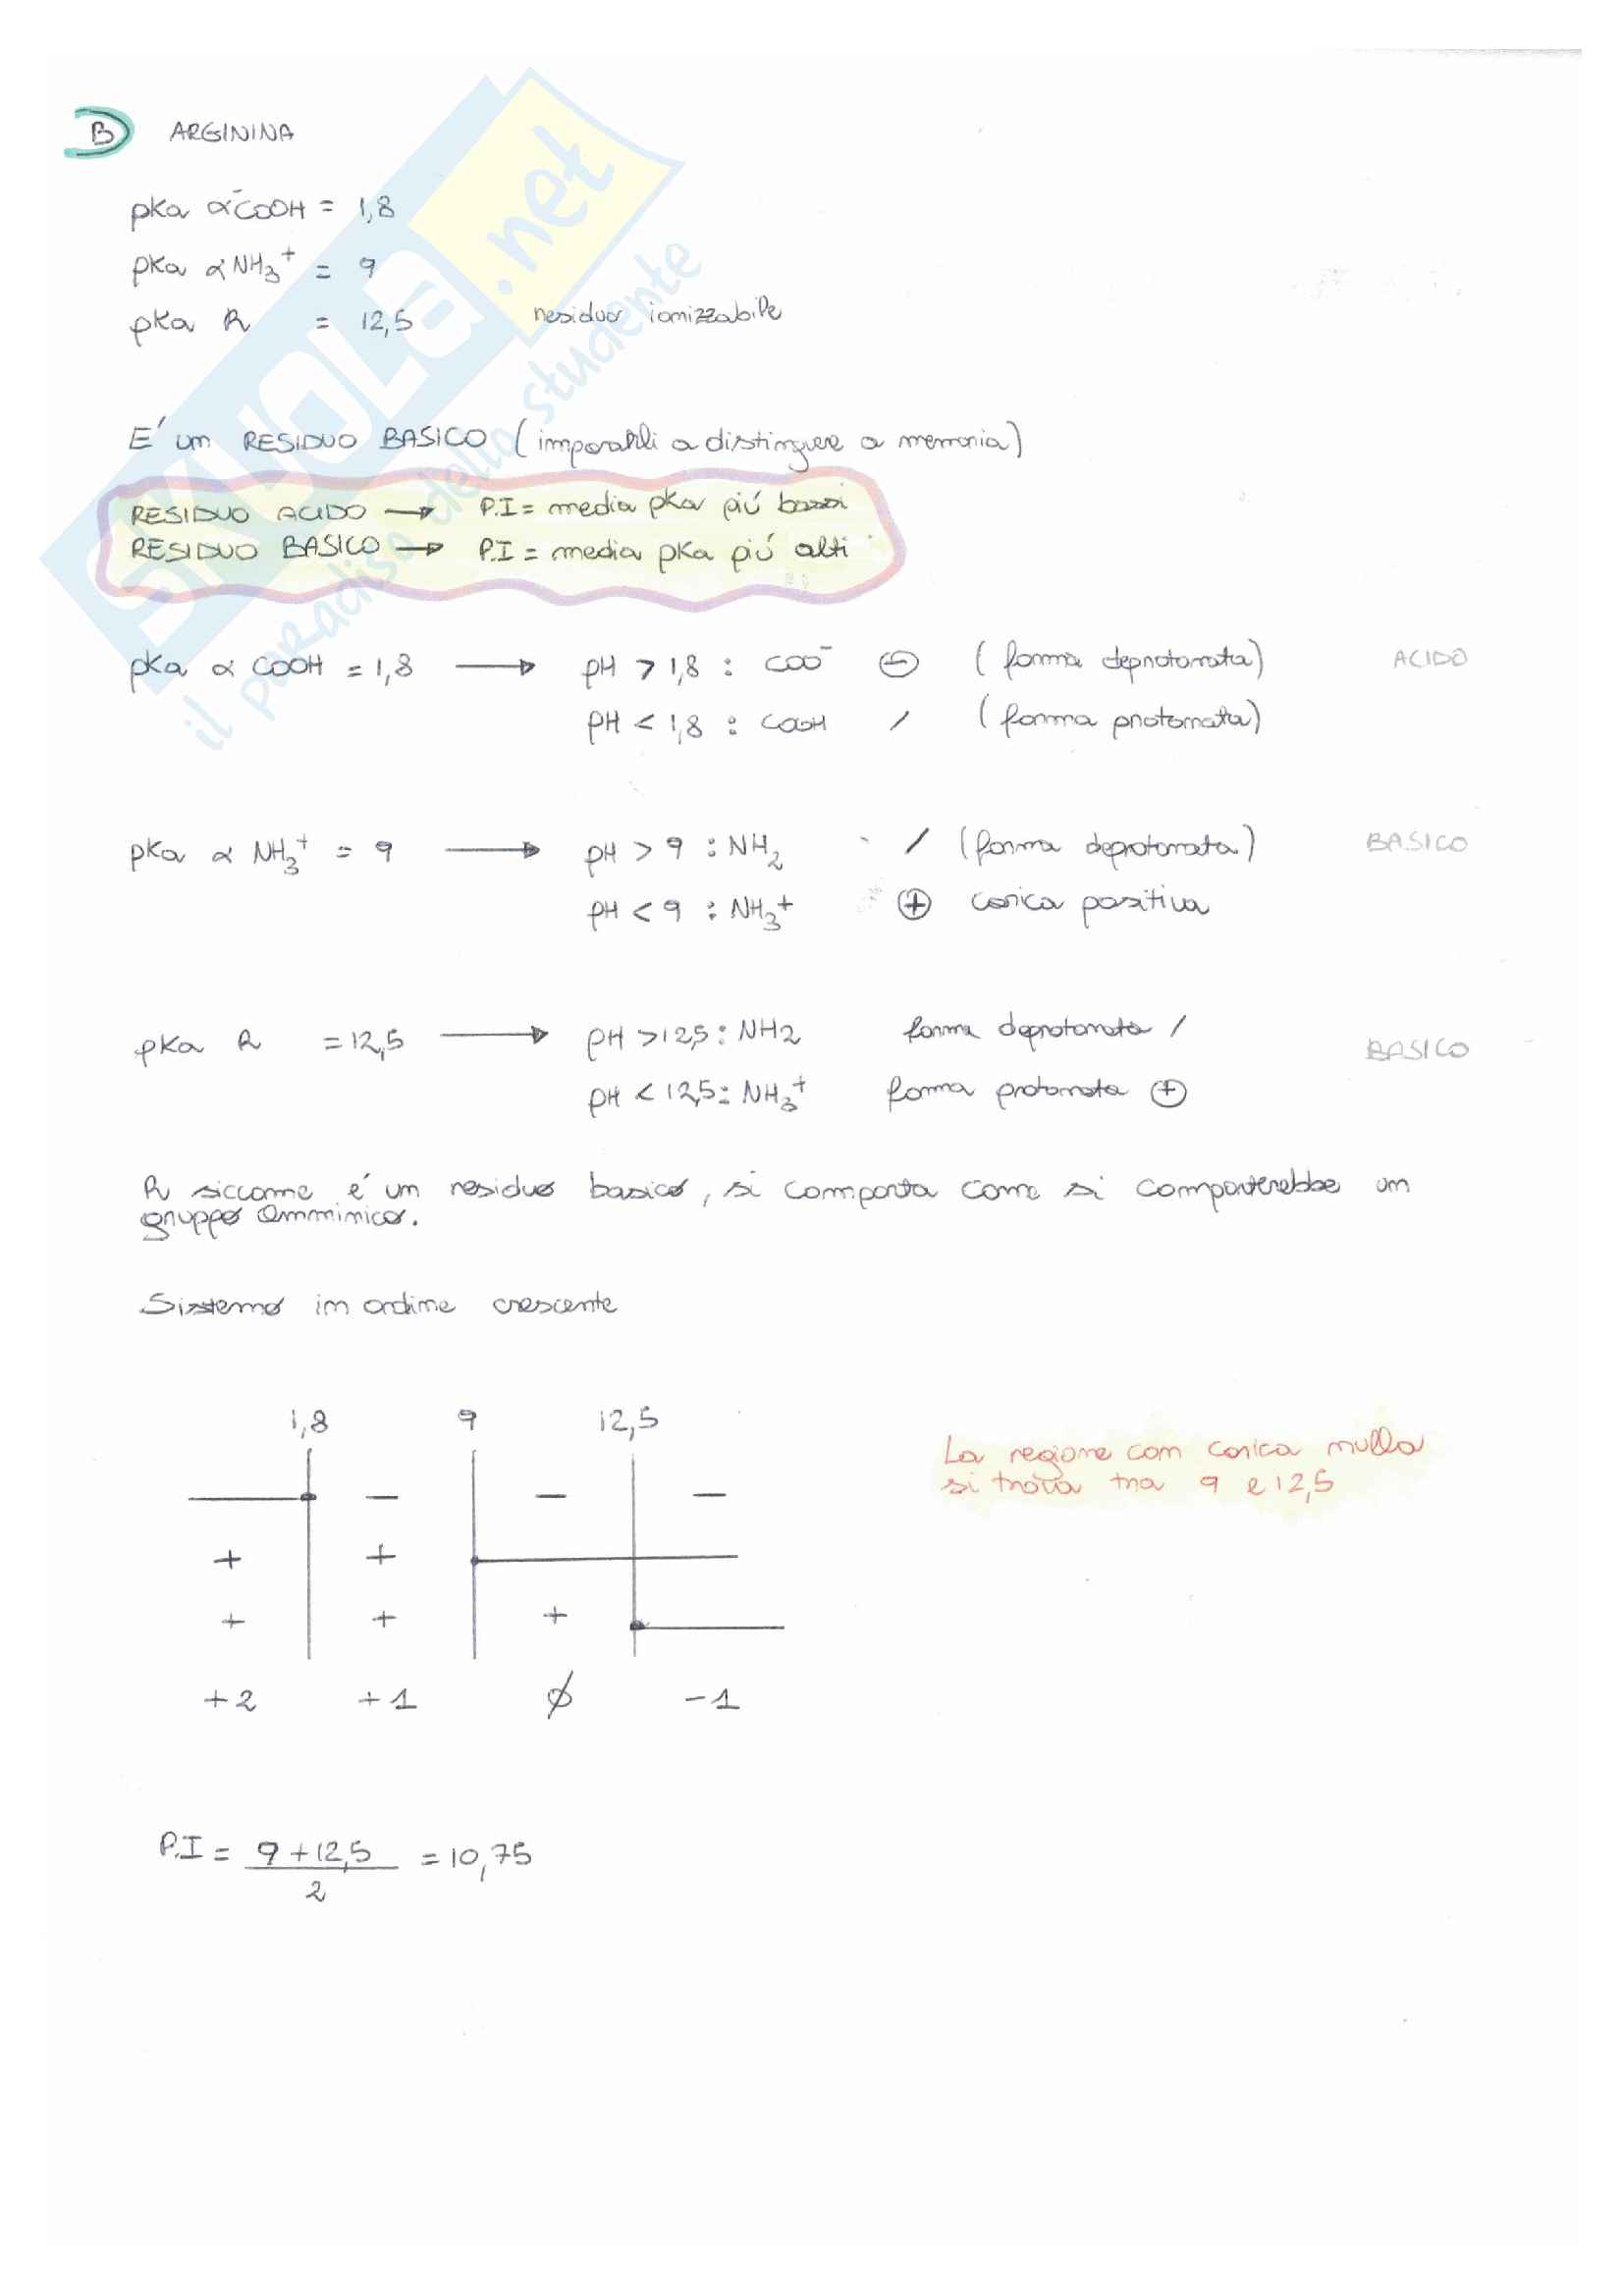 B ARGININA
pka α-COOH = 1,8
pka α NH3+ = 9
pka R = 12,5 residuo ionizzabile
E' un RESIDUO BASICO (imparatili a distinguere a memoria)
RESIDUO ACIDO → P.I = media pka più bassi
RESIDUO BASICO → P.I = media pka più alti
pka α COOH = 1,8 → pH > 1,8 : COO- ⊖ (forma deprotonata) ACIDO
pH < 1,8 : COOH / (forma protonata)
pka α NH3+ = 9 → pH > 9 : NH2 / (forma deprotonata) BASICO
pH < 9 : NH3+ ⊕ carica positiva
pka R = 12,5 → pH > 12,5 : NH2 forma deprotonata / BASICO
pH < 12,5 : NH3+ forma protonata ⊕
R siccome é un residuo basico, si comporta come si comporterebbe un
gruppo amminico.
Sistemo in ordine crescente
1,8 9 12,5
La regione con carica nulla
si trova tra 9 e 12,5
− − −
+ +
+ + +
+2 +1 ∅ −1
P.I = 9 + 12,5 / 2 = 10,75
SKUOLA.net
il paradiso dello studente